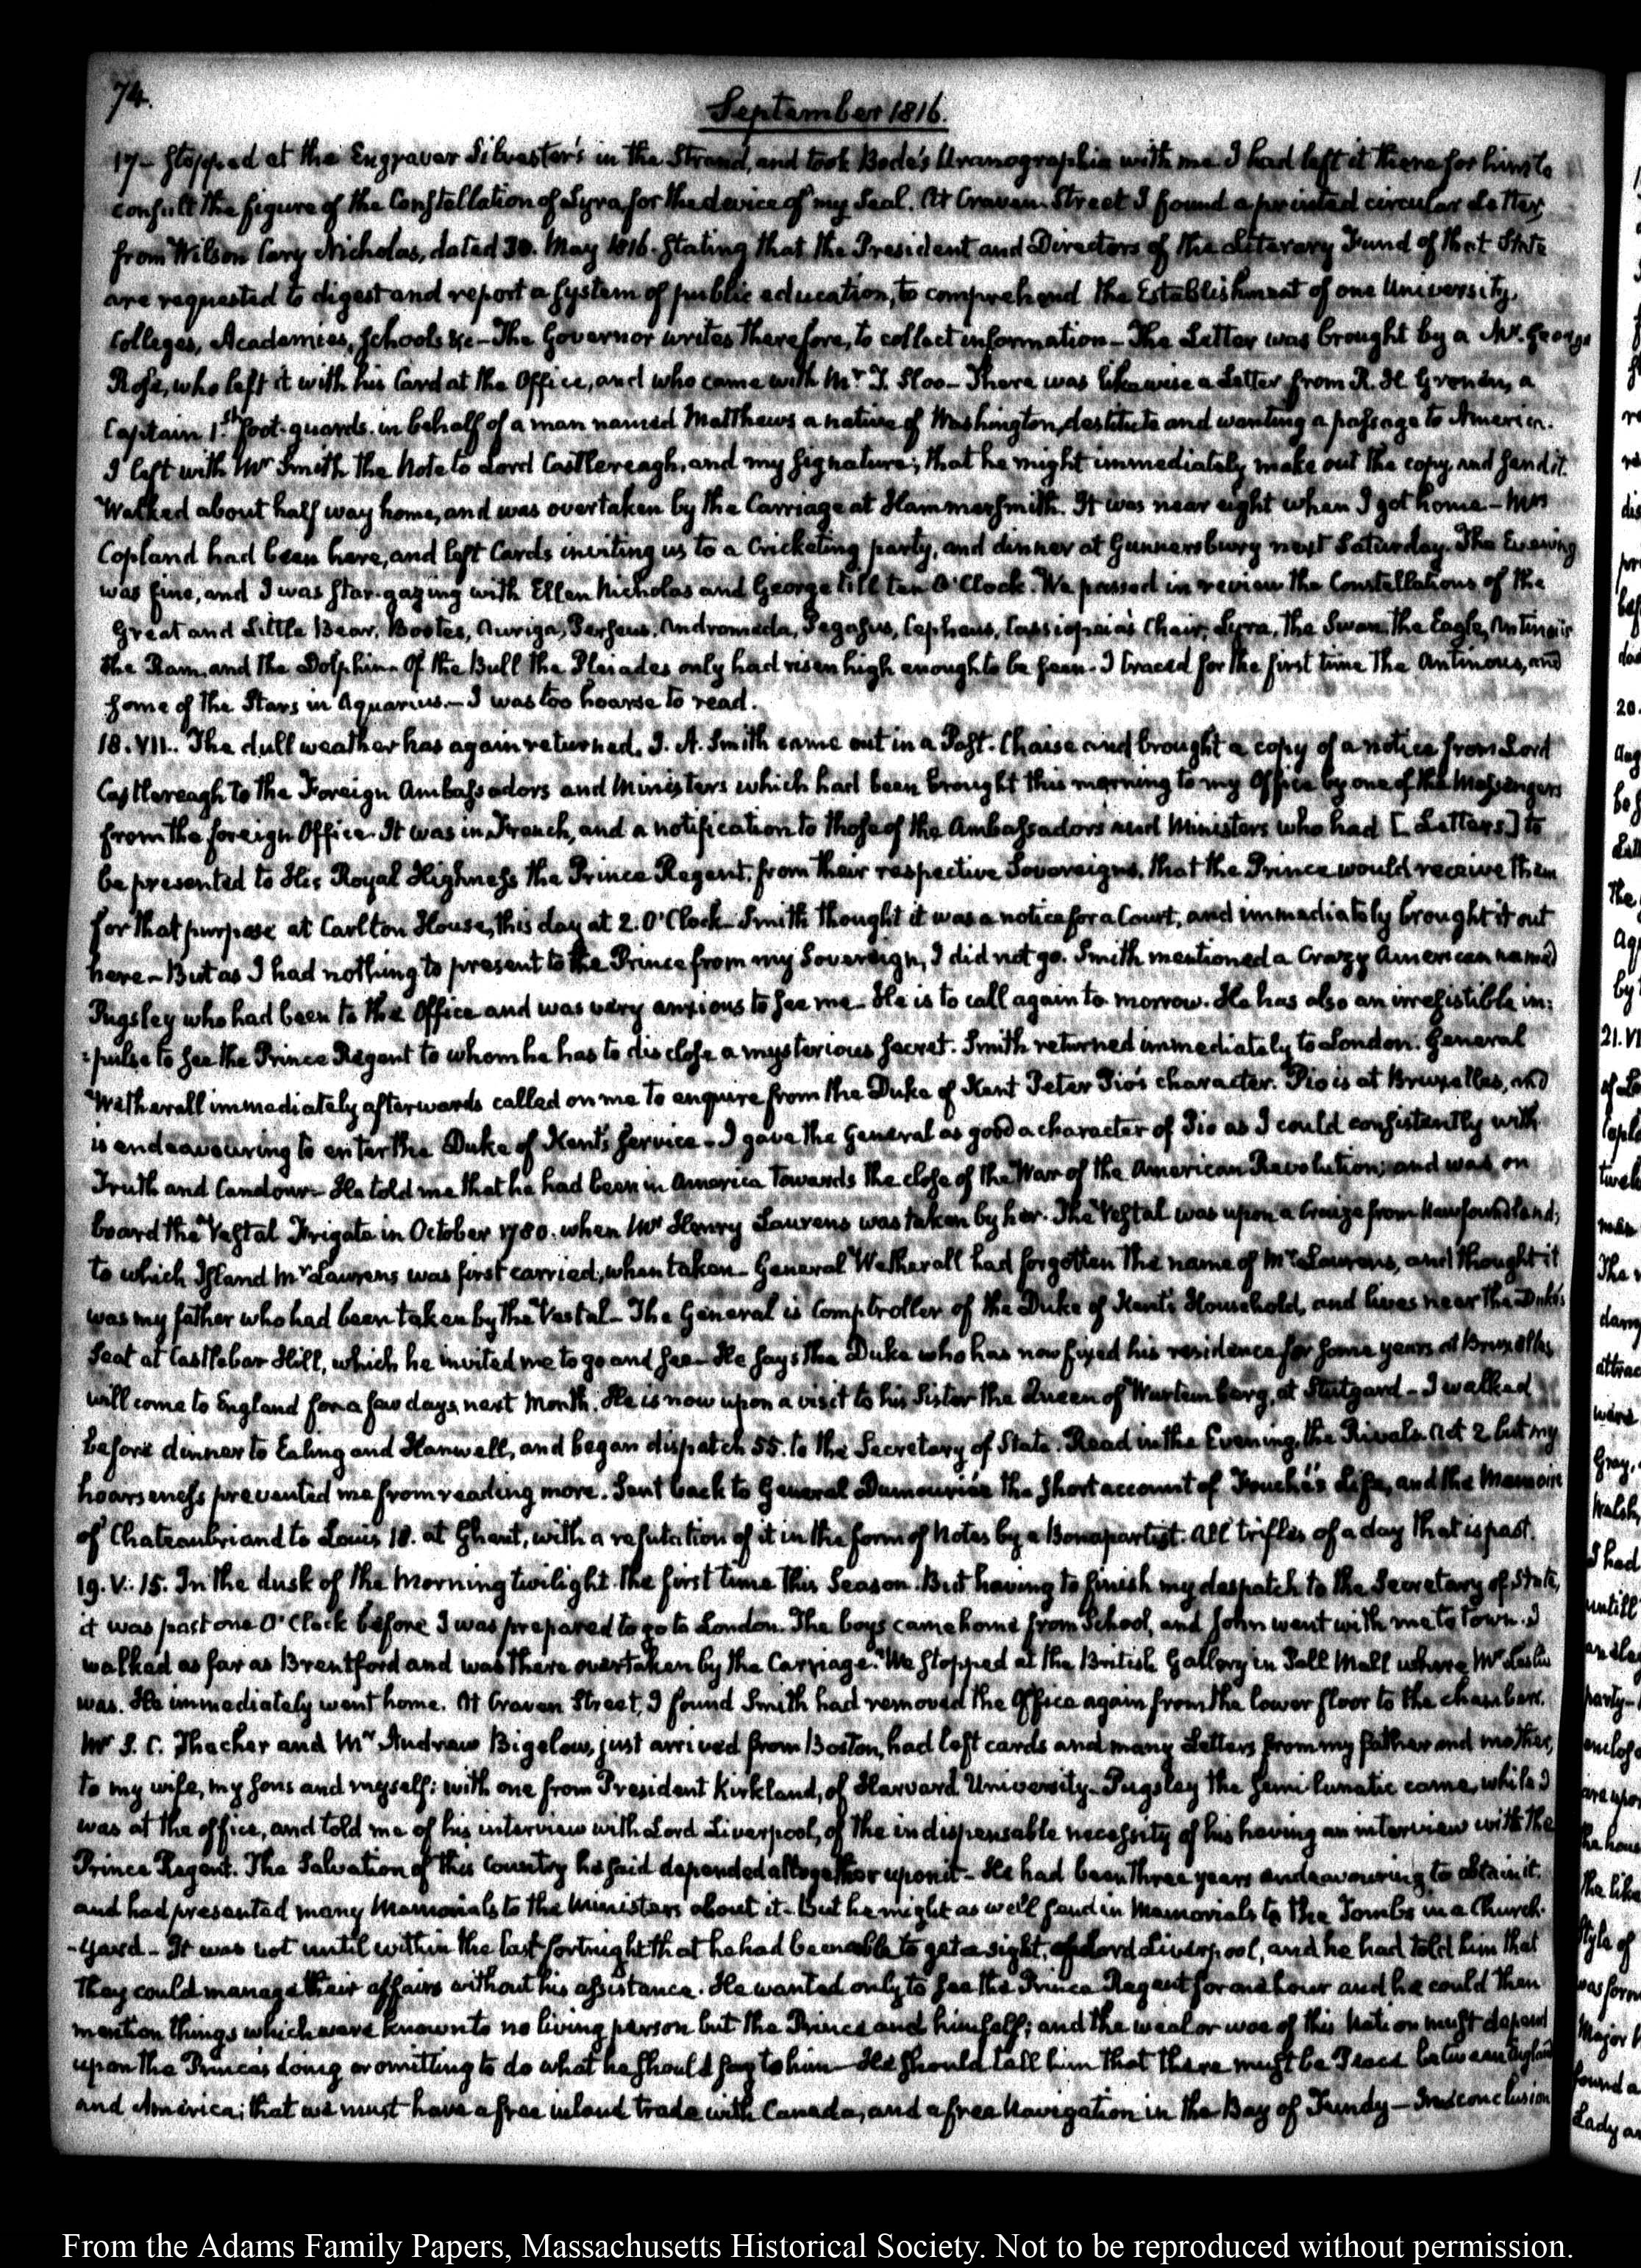 74.
September 1816.
17 – Stopped at the Engraver Silvester's in the Strand, and took Bode's Uranographia with me. I had left it there for him to
consult the figure of the Constellation of Lyra, for the device of my Seal. At Craven Street I found a printed circular Letter,
from Wilson Cary Nicholas, dated 30. May 1816. stating that the President and Directors of the Literary Fund of that State
are requested to digest and report a system of public education, to comprehend the Establishment of one University,
Colleges, Academies, Schools &c – The Governor writes therefore, to collect information – The Letter was brought by a Mr. George
Rose, who left it with his Card at the Office, and who came with Mr. T. Sloo – There was likewise a Letter from R. H. Gronow, a
Captain 1.st foot-guards. in behalf of a man named Matthews a native of Washington, destitute and wanting a passage to America.
I left with Mr Smith the Note to Lord Castlereagh, and my signature; that he might immediately make out the copy, and send it.
Walked about half way home, and was overtaken by the Carriage at Hammersmith. It was near eight when I got home – Mrs
Copland had been here, and left Cards inviting us to a Cricketing party, and dinner at Gunnersbury next Saturday. The Evening
was fine, and I was star-gazing with Ellen Nicholas and George till ten O'Clock. We passed in review the Constellations of the
Great and Little Bear, Bootes, Auriga, Perseus, Andromeda, Pegasus, Cepheus, Cassiopeia's Chair, Lyra, the Swan, the Eagle, Antinous
the Ram, and the Dolphin. Of the Bull the Pleiades only had risen high enough to be seen. I traced for the first time the Antinous, and
some of the Stars in Aquarius. – I was too hoarse to read.
18. VII. The dull weather has again returned. J. A. Smith came out in a Post-Chaise and brought a copy of a notice from Lord
Castlereagh to the Foreign Ambassadors and Ministers which had been brought this morning to my Office by one of the Messengers
from the foreign Office. It was in French, and a notification to those of the Ambassadors and Ministers who had [Letters] to
be presented to His Royal Highness the Prince Regent, from their respective Sovereigns, that the Prince would receive them
for that purpose at Carlton House, this day at 2. O'Clock – Smith thought it was a notice for a Court, and immediately brought it out
here – But as I had nothing to present to the Prince from my Sovereign, I did not go. Smith mentioned a Crazy American named
Pugsley who had been to the Office and was very anxious to see me – He is to call again to-morrow. He has also an irresistible im:
:pulse to see the Prince Regent to whom he has to disclose a mysterious secret. Smith returned immediately to London. General
Wetherall immediately afterwards called on me to enquire from the Duke of Kent Peter Pio's character. Pio is at Bruxelles, and
is endeavouring to enter the Duke of Kent's service – I gave the General as good a character of Pio as I could consistently with
Truth and Candour – He told me that he had been in America towards the close of the War of the American Revolution; and was on
board the Vestal Frigate in October 1780. when Mr Henry Laurens was taken by her. The Vestal was upon a Cruize from Newfoundland;
to which Island Mr Laurens was first carried, when taken – General Wetherall had forgotten the name of Mr Laurens, and thought it
was my father who had been taken by the Vestal – The General is Comptroller of the Duke of Kent's Household, and lives near the Duke's
Seat at Castlebar Hill, which he invited me to go and see – He says the Duke who has now fixed his residence for some years at Bruxelles
will come to England for a few days next Month. He is now upon a visit to his Sister the Queen of Wurtemberg, at Stutgard – I walked
before dinner to Ealing and Hanwell, and began dispatch 55. to the Secretary of State. Read in the Evening, the Rivals. Act 2 but my
hoarseness prevented me from reading more. Sent back to General Dumouriez the short account of Fouché's Life, and the Memoire
of Chateaubriand to Louis 18. at Ghent, with a refutation of it in the form of Notes by a Bonapartist. All trifles of a day that is past.
19. V: 15. In the dusk of the Morning twilight the first time this Season. But having to finish my despatch to the Secretary of State,
it was past one O'Clock before I was prepared to go to London. The boys came home from School, and John went with me to town. I
walked as far as Brentford and was there overtaken by the Carriage. We stopped at the British Gallery in Pall Mall where Mr Leslie
was. He immediately went home. At Craven Street, I found Smith had removed the Office again from the lower floor to the chambers.
Mr S. C. Thacher and Mr Andrew Bigelow, just arrived from Boston, had left cards and many Letters from my father and mother,
to my wife, my Sons and myself: with one from President Kirkland, of Harvard University – Pugsley the semi-lunatic came, while I
was at the office, and told me of his interview with Lord Liverpool, of the indispensable necessity of his having an interview with the
Prince Regent. The Salvation of this Country he said depended altogether upon it – He had been three years endeavouring to obtain it.
and had presented many Memorials to the Ministers about it – But he might as well send in Memorials to the Tombs in a Church-
-yard – It was not until within the last fortnight that he had been able to get a sight, of Lord Liverpool, and he had told him that
they could manage their affairs without his assistance. He wanted only to see the Prince Regent for one hour and he could then
mention things which were known to no living person but the Prince and himself; and the weal or woe of this Nation must depend
upon the Prince's doing or omitting to do what he should say to him – He should tell him that there must be Peace between England
and America; that we must have a free inland trade with Canada, and a free Navigation in the Bay of Fundy – In conclusion
From the Adams Family Papers, Massachusetts Historical Society. Not to be reproduced without permission.